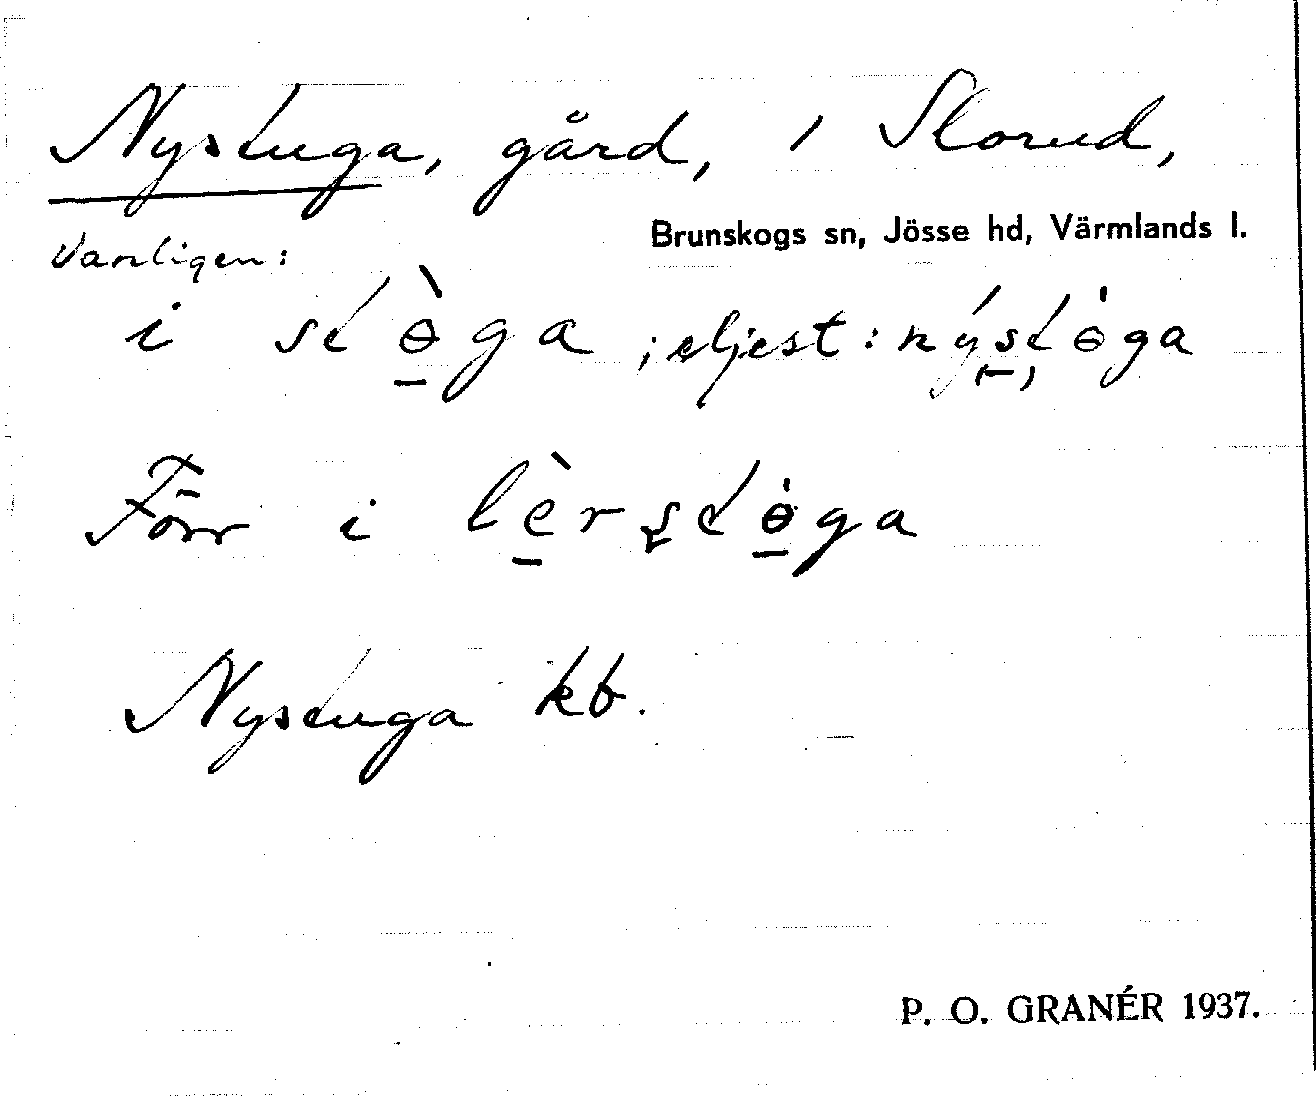 Nystuga, gård, i Slorud,
Brunskogs sn, Jösse hd, Värmlands l.
Vanligen:
i stɵ̀ga ; eljest: nýstɵ̇ga
Förr i lèrstɵ̇ga
Nystuga kb.
P. O. GRANÉR 1937.